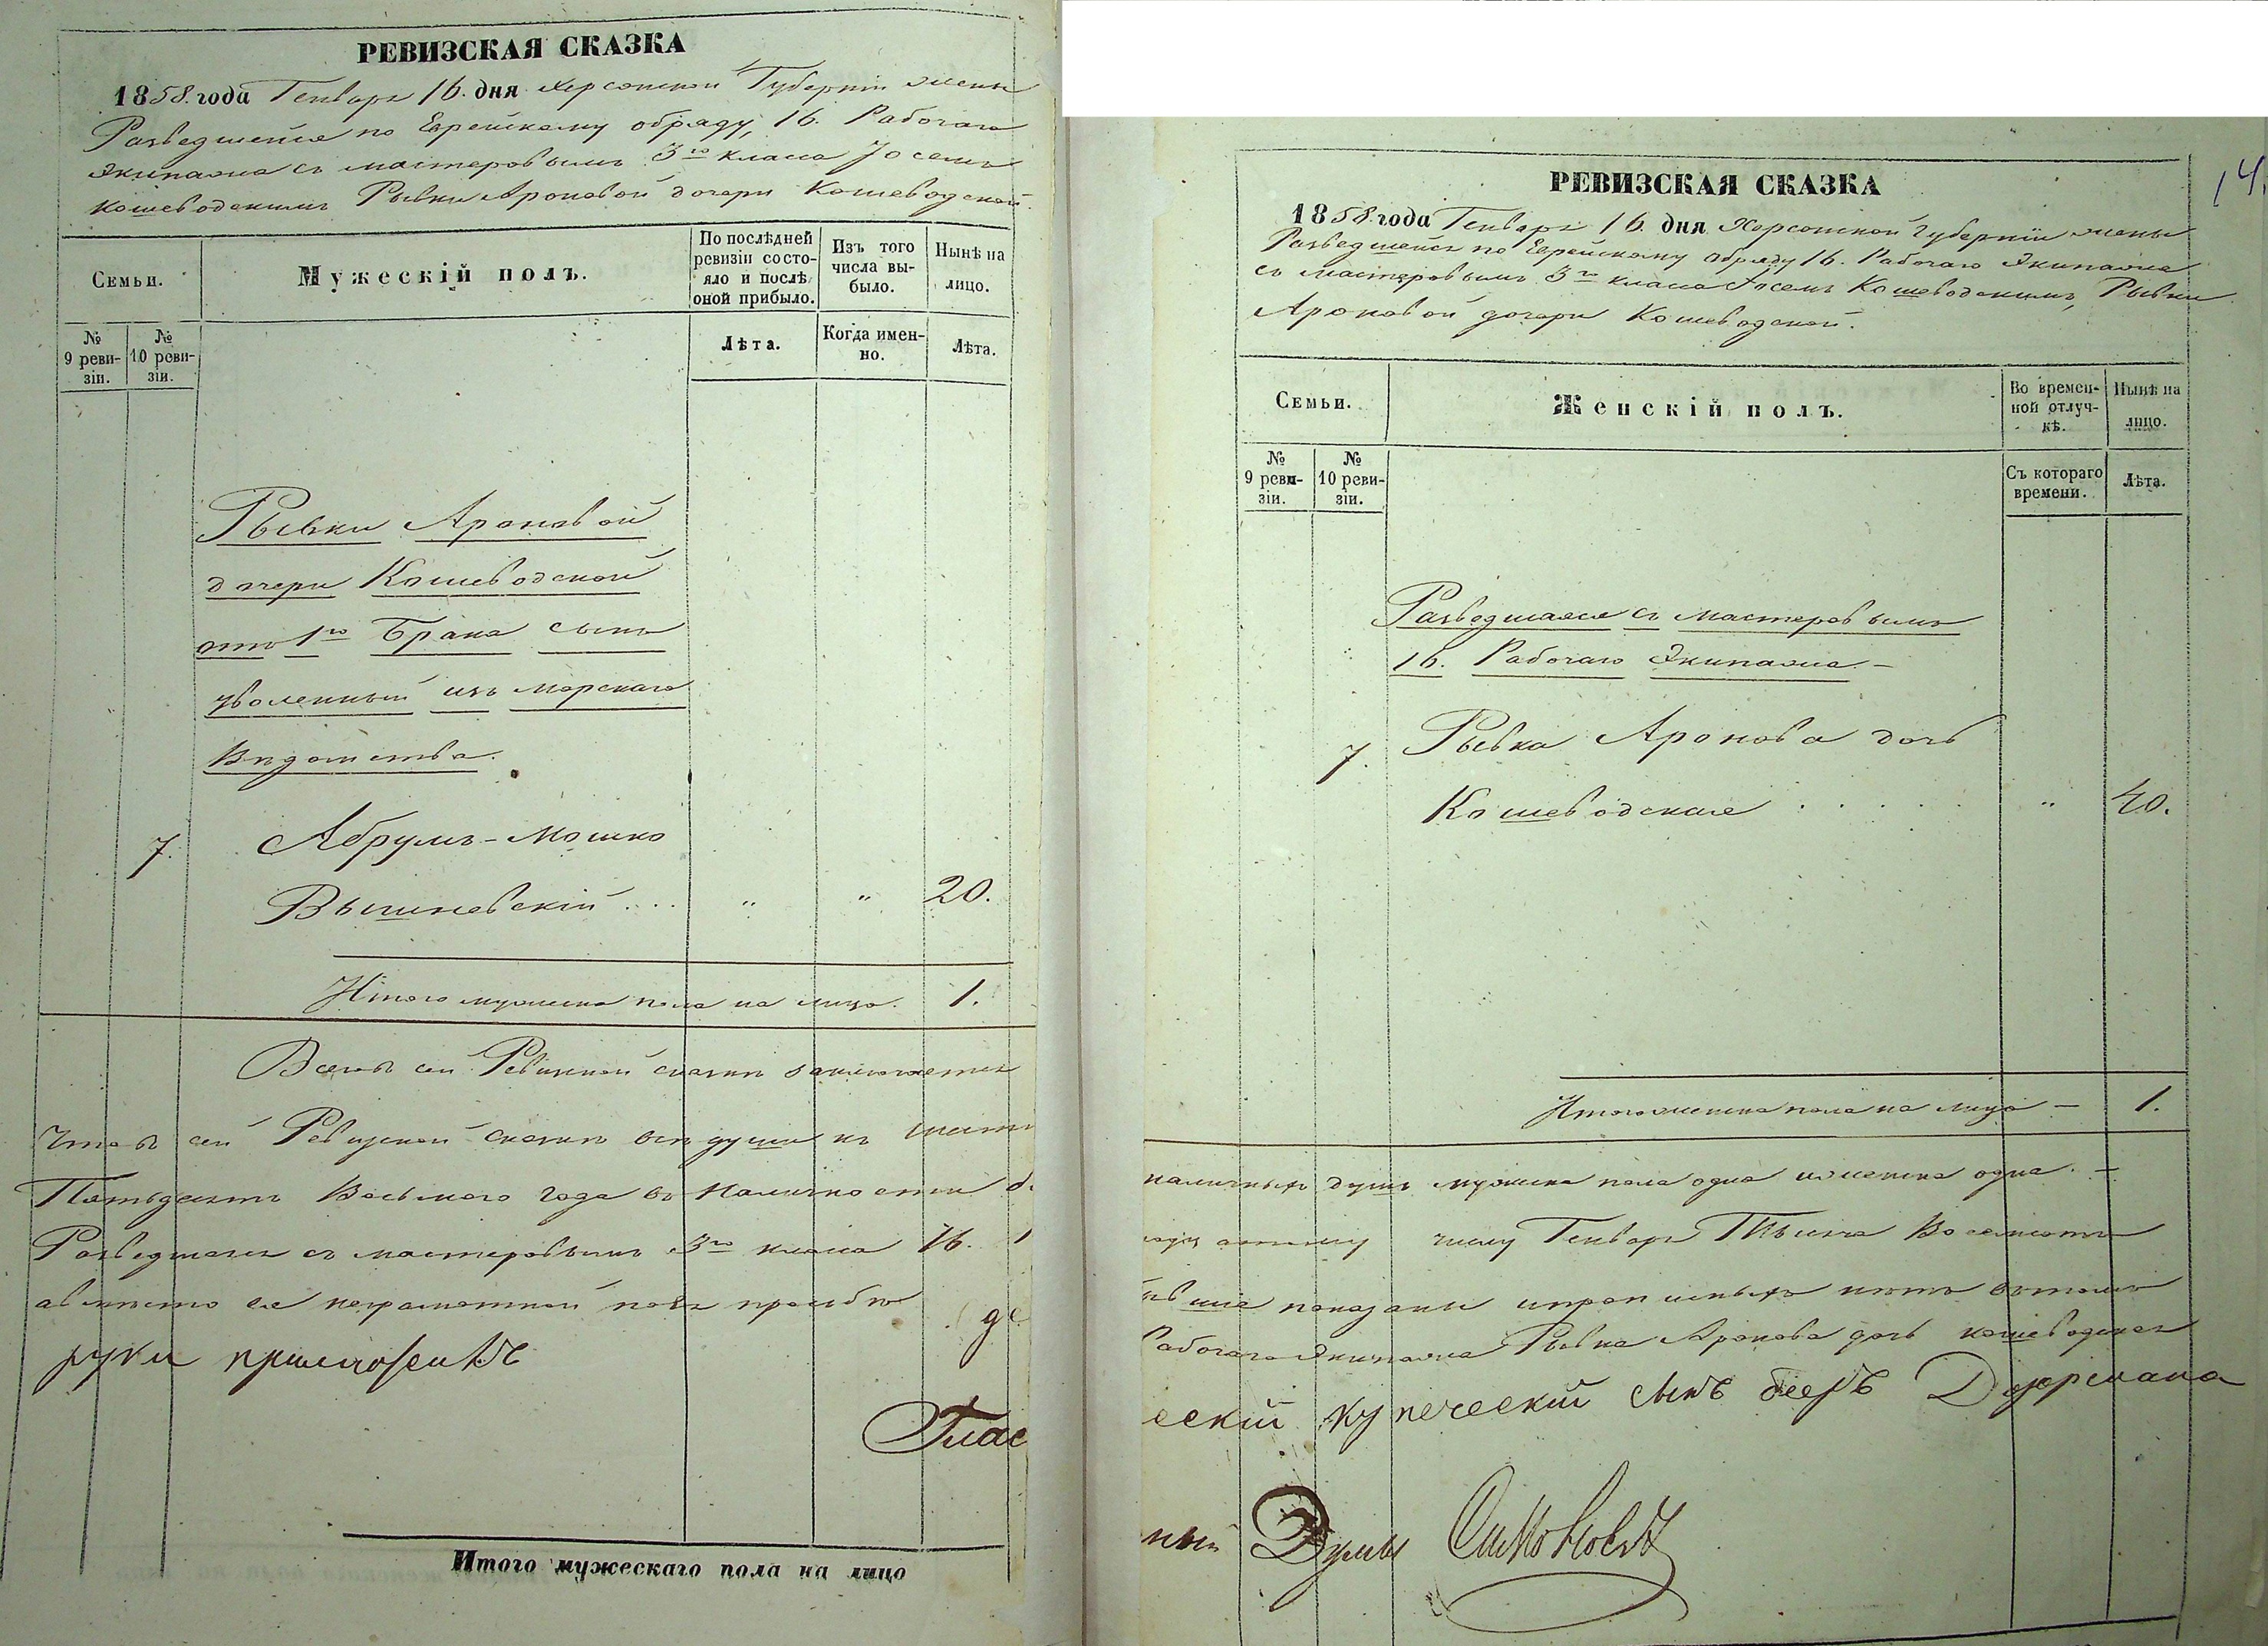 РЕВИЗСКАЯ СКАЗКА
1858. года Генваря 16. дня Херсонской Губерніи жены
Разведшейся по Еврейскому обряду, 16. Рабочаго
Экипажа съ мастеровымъ 3го класа Іосемъ
Кошеводскимъ Рывки Ароновой дочери Кошеводской.
Семьи.
Мужескій полъ.
По послѣдней ревизіи состояло и послѣ оной прибыло.
Изъ того числа выбыло.
Нынѣ на лицо.
№ 9 ревизіи.
№ 10 ревизіи.
Лѣта.
Когда именно.
Лѣта.
Рывки Ароновой
дочери Кошеводской
отъ 1го Брака сынъ
уволенный изъ морскаго
Вѣдомства.
7. Абрумъ-Мошко
Вышневскій .... " " 20.
Итого мужеска пола на лицо. 1.
Всего въ сей Ревизской сказкѣ заключается
Что въ сей Ревизской сказкѣ всѣ души къ
Пятьдесятъ Восьмого года въ наличности
Разведшаяся съ мастеровымъ 3го класа 16.
а вмѣсто ея неграмотной по ея прозьбѣ
руки приложилъ
Глас
Итого мужескаго пола на лицо
14.
РЕВИЗСКАЯ СКАЗКА
1858. года Генваря 16. дня Херсонской Губерніи жены
Разведшейся по Еврейскому обряду 16. Рабочаго Экипажа
съ мастеровымъ 3го класа Іосемъ Кошеводскимъ, Рывки
Ароновой дочери Кошеводской.
Семьи.
Женскій полъ.
Во временной отлучкѣ.
Нынѣ на лицо.
№ 9 ревизіи.
№ 10 ревизіи.
Съ котораго времени.
Лѣта.
Разведшаяся съ мастеровымъ
16. Рабочаго Экипажа –
7. Рывка Аронова дочь
Кошеводская . . . . . " 40.
Итого женска пола на лицо – 1.
наличныхъ душъ мужеска пола одна и женска одна. –
числу Генваря Тысяча Восемьсотъ
показаны и прописныхъ нѣтъ въ томъ
Рабочаго Экипажа Рывка Аронова дочь Кошеводская
еской купеческій сынъ
ный Думы